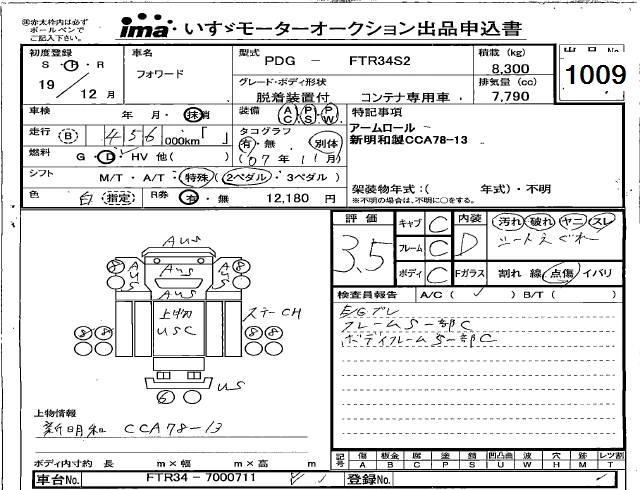 ※赤太枠内は必ず ボールペンで ご記入下さい。
ima・いすゞモーターオークション出品申込書
初度登録 S・H・R 19／12月
車名 フォワード
型式 PDG － FTR34S2
積載 (kg) 8,300
出品No 1009
グレード・ボディ形状 脱着装置付 コンテナ専用車
排気量 (cc) 7,790
車検 年 月・抹消
装備 AC・PS・PW
特記事項
走行 B 456 000km「 」
タコグラフ 有・無 別体
アームロール
新明和製CCA78-13
燃料 G・D・HV 他( )
(07年11月)
シフト M/T・A/T・特殊(2ペダル・3ペダル)
架装物年式：( 年式)・不明
※不明の場合は、不明に○をする。
色 白 指定 R券 有・無 12,180 円
評価 3.5
キャブ C
内装 D
汚れ 破れ ヤニ スレ
シートえぐれ
フレーム C
ボディ C
Fガラス 割れ 線 点傷 イバリ
検査員報告 A/C ( ✓ ) B/T ( )
E/Gブレ
フレームS一部C
ボディフレームS一部C
AUS
8 AUS AUS AUS 8
AUS
上物 USC
ステーCH
8 8 8 8
US
6
上物情報
新明和 CCA78-13
ボディ内寸約 長 m×幅 m×高 m
記号 傷A 板金B 腐C 塗P 錆S 凹凸曲U 波W 穴H 跡M レツ割T
車台No. FTR34 - 7000711
登録No.